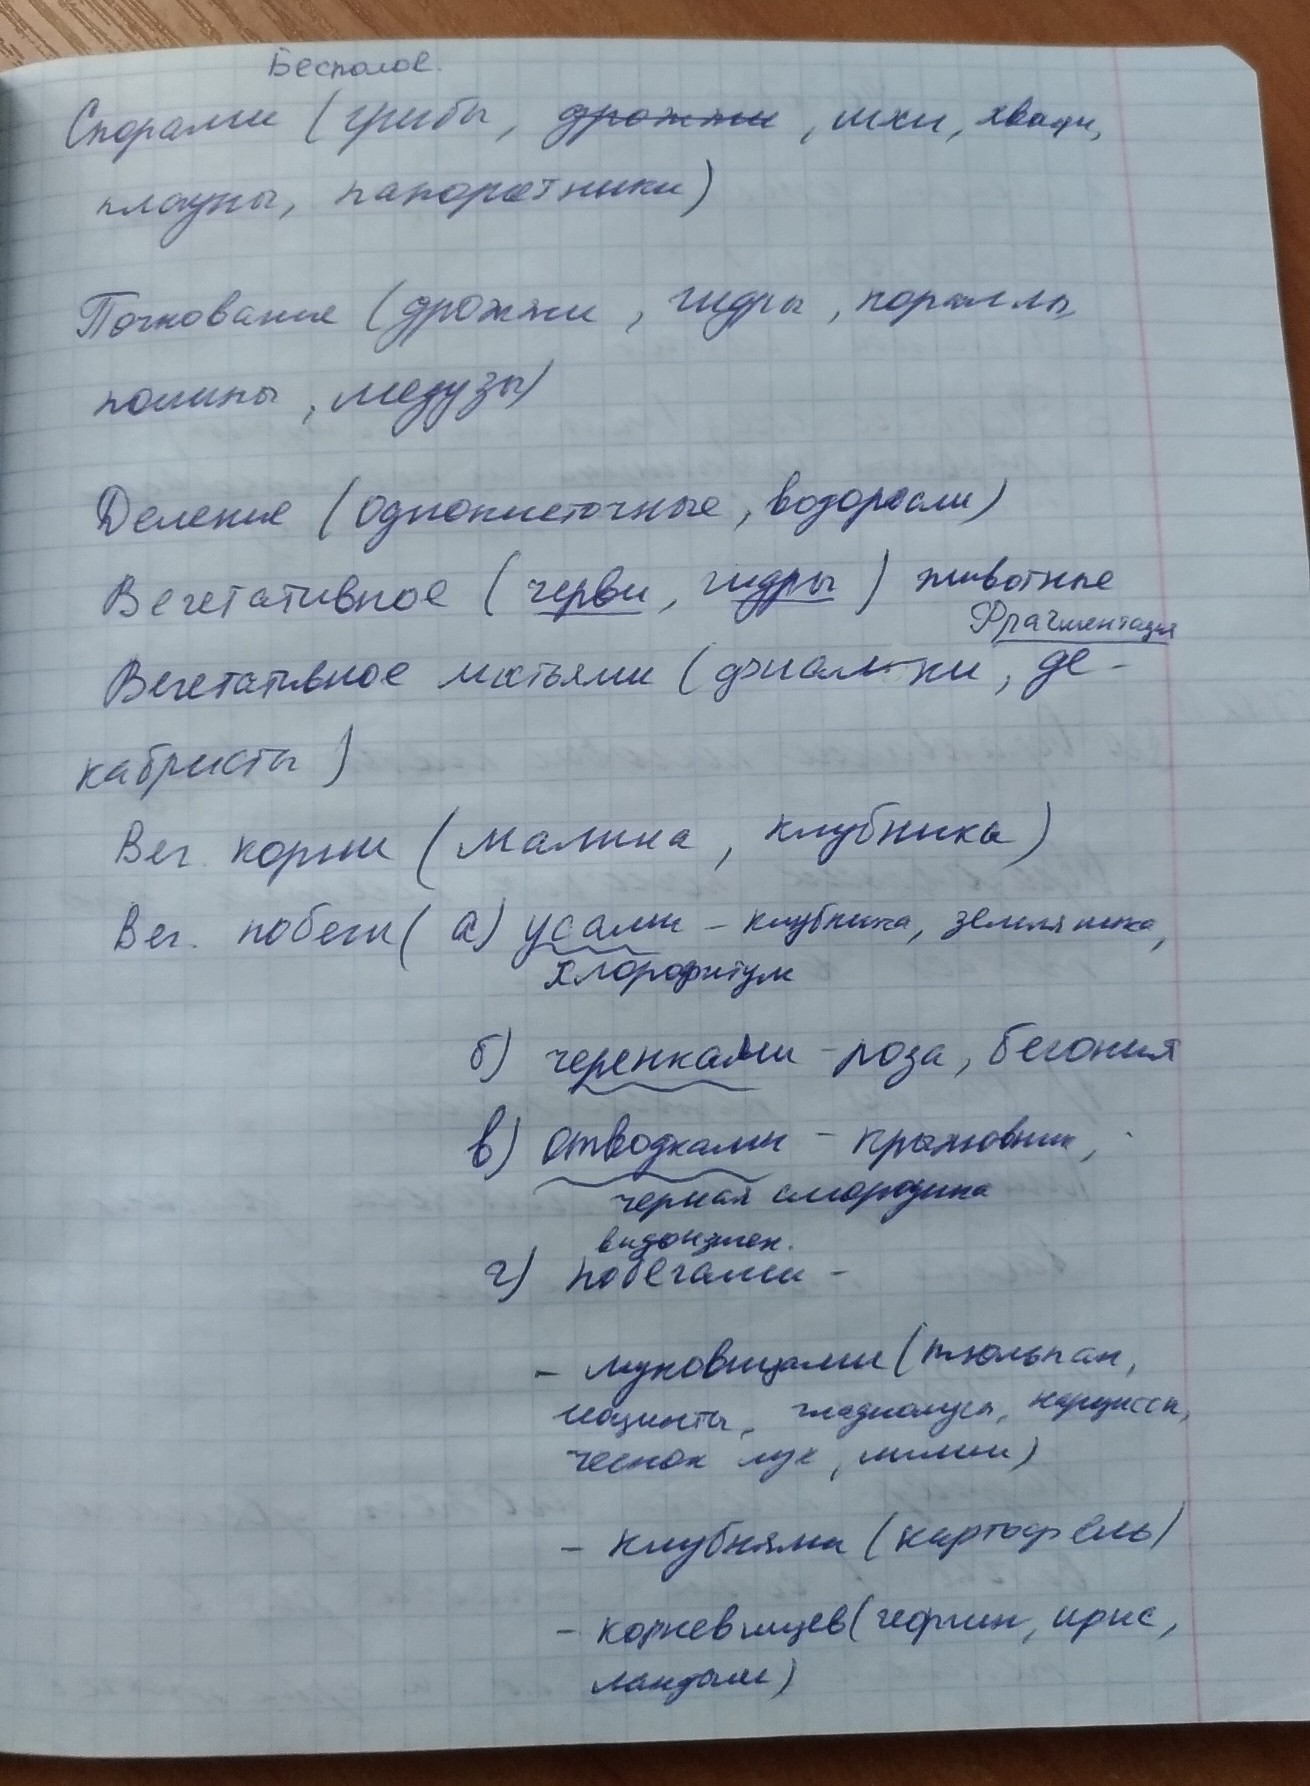 Бесполое.
Спорами (грибы, дрожжи, мхи, хвощи,
плауны, папоротники)
Почкование (дрожжи, гидры, кораллы,
полипы, медузы)
Деление (одноклеточные, водоросли)
Вегетативное (черви, гидры) животные
Фрагментация
Вегетативное листьями (фиалки, де-
кабристы)
Вег. корни (малина, клубника)
Вег. побеги (а) усами - клубника, земляника,
хлорофитум
б) черенками - роза, бегония
в) отводками - крыжовник,
черная смородина
видоизмен.
г) побегами -
- луковицами (тюльпан,
гиацинты, гладиолусы, нарциссы,
чеснок лук, лилии)
- клубнями (картофель)
- корневищев (георгин, ирис,
ландыш)